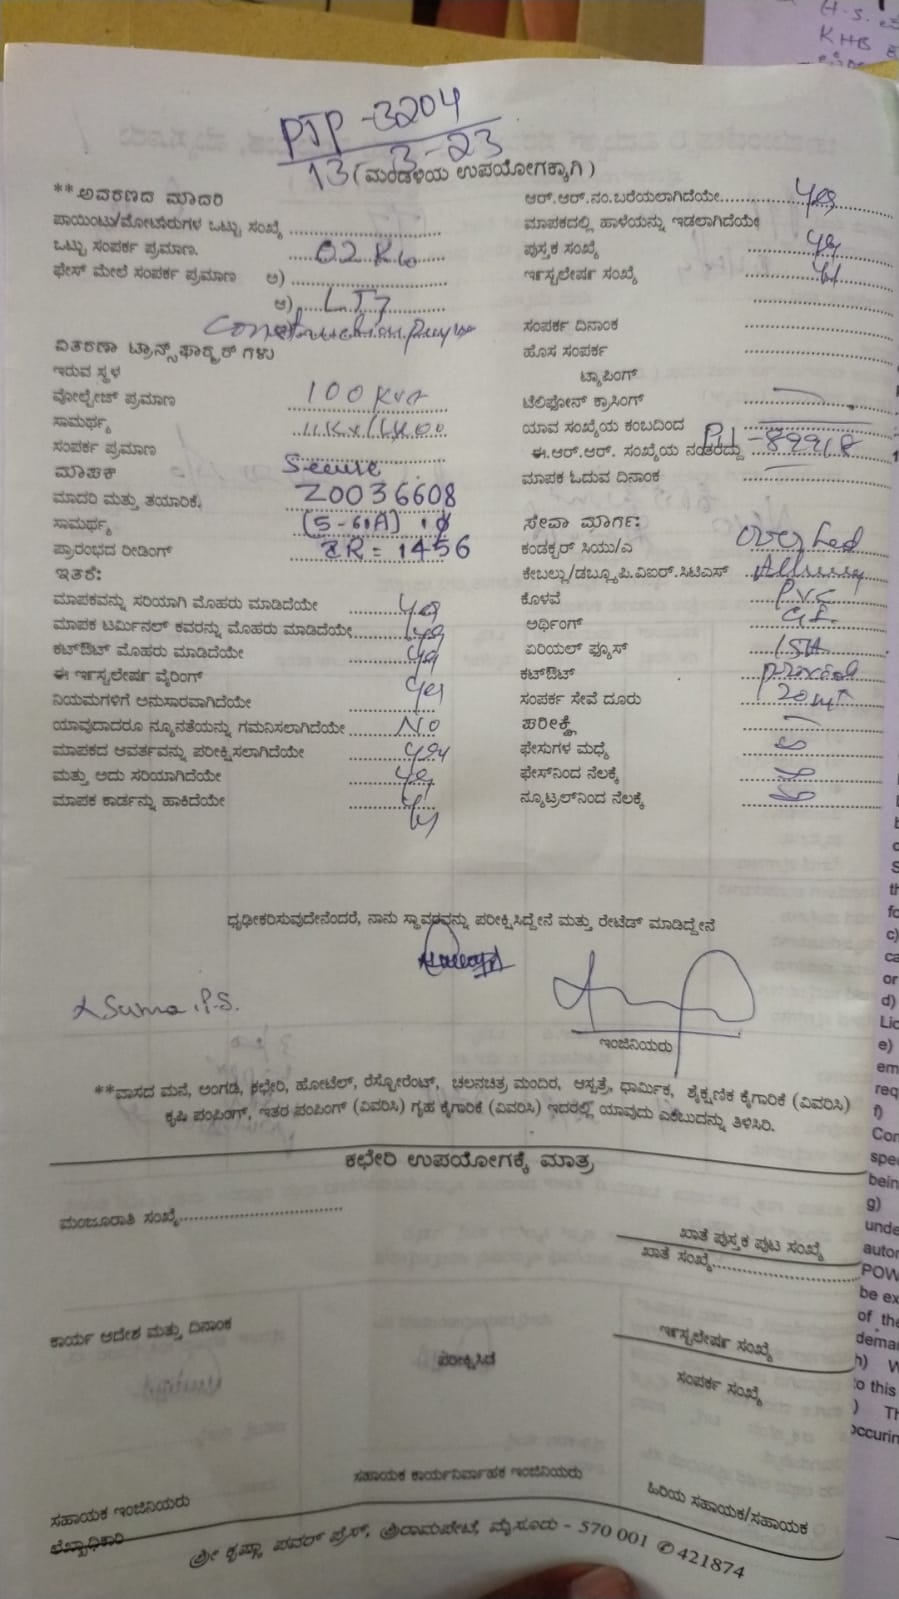 H-S.
KHB
PTP -3204
13-3-23
(ಮಂಡಳಿಯ ಉಪಯೋಗಕ್ಕಾಗಿ)
**ಆವರಣದ ಮಾದರಿ
ಪಾಯಿಂಟು/ಮೋಟಾರುಗಳ ಒಟ್ಟು ಸಂಖ್ಯೆ
ಒಟ್ಟು ಸಂಪರ್ಕ ಪ್ರಮಾಣ. 02 Kw
ಫೇಸ್ ಮೇಲೆ ಸಂಪರ್ಕ ಪ್ರಮಾಣ ಅ)
ಆ) LT7
Construction
ವಿತರಣಾ ಟ್ರಾನ್ಸ್‌ಫಾರ್ಮರ್‌ಗಳು
ಇರುವ ಸ್ಥಳ
ವೋಲ್ಟೇಜ್ ಪ್ರಮಾಣ 100 KVA
ಸಾಮರ್ಥ್ಯ
ಸಂಪರ್ಕ ಪ್ರಮಾಣ
ಮಾಪಕ Secure
ಮಾದರಿ ಮತ್ತು ತಯಾರಿಕೆ. Z0036608
ಸಾಮರ್ಥ್ಯ (5-60A)
ಪ್ರಾರಂಭದ ರೀಡಿಂಗ್ IR = 1456
ಇತರೆ:
ಮಾಪಕವನ್ನು ಸರಿಯಾಗಿ ಮೊಹರು ಮಾಡಿದೆಯೇ yes
ಮಾಪಕ ಟರ್ಮಿನಲ್ ಕವರನ್ನು ಮೊಹರು ಮಾಡಿದೆಯೇ yes
ಕಟ್‌ಔಟ್ ಮೊಹರು ಮಾಡಿದೆಯೇ yes
ಈ ಇನ್‌ಸ್ಟಲೇಷನ್ ವೈರಿಂಗ್
ನಿಯಮಗಳಿಗೆ ಅನುಸಾರವಾಗಿದೆಯೇ yes
ಯಾವುದಾದರೂ ನ್ಯೂನತೆಯನ್ನು ಗಮನಿಸಲಾಗಿದೆಯೇ NO
ಮಾಪಕದ ಆವರ್ತವನ್ನು ಪರೀಕ್ಷಿಸಲಾಗಿದೆಯೇ yes
ಮತ್ತು ಅದು ಸರಿಯಾಗಿದೆಯೇ yes
ಮಾಪಕ ಕಾರ್ಡನ್ನು ಹಾಕಿದೆಯೇ
ಆರ್.ಆರ್.ನಂ.ಬರೆಯಲಾಗಿದೆಯೇ yes
ಮಾಪಕದಲ್ಲಿ ಹಾಳೆಯನ್ನು ಇಡಲಾಗಿದೆಯೇ
ಪುಸ್ತಕ ಸಂಖ್ಯೆ
ಇನ್‌ಸ್ಟಲೇಷನ್ ಸಂಖ್ಯೆ
ಸಂಪರ್ಕ ದಿನಾಂಕ
ಹೊಸ ಸಂಪರ್ಕ
ಟ್ಯಾಪಿಂಗ್
ಟೆಲಿಫೋನ್ ಕ್ರಾಸಿಂಗ್
ಯಾವ ಸಂಖ್ಯೆಯ ಕಂಬದಿಂದ
ಈ.ಆರ್.ಆರ್. ಸಂಖ್ಯೆಯ ನಂತರದ್ದು
ಮಾಪಕ ಓದುವ ದಿನಾಂಕ
ಸೇವಾ ಮಾರ್ಗ:
ಕಂಡಕ್ಟರ್ ಸಿಯು/ಎ
ಕೇಬಲ್ಲು/ಡಬ್ಲ್ಯೂಪಿ.ವಿಐಆರ್.ಸಿಟಿಎಸ್
ಕೊಳವೆ PVC
ಅರ್ಥಿಂಗ್ G.I.
ಏರಿಯಲ್ ಫ್ಯೂಸ್ 15A
ಕಟ್‌ಔಟ್
ಸಂಪರ್ಕ ಸೇವೆ ದೂರು 20 mt
ಪರೀಕ್ಷೆ
ಫೇಸುಗಳ ಮಧ್ಯೆ
ಫೇಸ್‌ನಿಂದ ನೆಲಕ್ಕೆ
ನ್ಯೂಟ್ರಲ್‌ನಿಂದ ನೆಲಕ್ಕೆ
ಧೃಢೀಕರಿಸುವುದೇನೆಂದರೆ, ನಾನು ಸ್ಥಾವರವನ್ನು ಪರೀಕ್ಷಿಸಿದ್ದೇನೆ ಮತ್ತು ರೇಟೆಡ್ ಮಾಡಿದ್ದೇನೆ
Suma .P.S.
ಇಂಜಿನಿಯರು
**ವಾಸದ ಮನೆ, ಅಂಗಡಿ, ಕಛೇರಿ, ಹೋಟೆಲ್, ರೆಸ್ಟೋರೆಂಟ್, ಚಲನಚಿತ್ರ ಮಂದಿರ, ಆಸ್ಪತ್ರೆ, ಧಾರ್ಮಿಕ, ಶೈಕ್ಷಣಿಕ ಕೈಗಾರಿಕೆ (ವಿವರಿಸಿ)
ಕೃಷಿ ಪಂಪಿಂಗ್, ಇತರ ಪಂಪಿಂಗ್ (ವಿವರಿಸಿ) ಗೃಹ ಕೈಗಾರಿಕೆ (ವಿವರಿಸಿ) ಇದರಲ್ಲಿ ಯಾವುದು ಎಂಬುದನ್ನು ತಿಳಿಸಿರಿ.
ಕಛೇರಿ ಉಪಯೋಗಕ್ಕೆ ಮಾತ್ರ
ಮಂಜೂರಾತಿ ಸಂಖ್ಯೆ
ಖಾತೆ ಪುಸ್ತಕ ಪುಟ ಸಂಖ್ಯೆ
ಖಾತೆ ಸಂಖ್ಯೆ
ಕಾರ್ಯ ಆದೇಶ ಮತ್ತು ದಿನಾಂಕ
ಇನ್‌ಸ್ಟಲೇಷನ್ ಸಂಖ್ಯೆ
ಪರೀಕ್ಷಿಸಿದೆ
ಸಂಪರ್ಕ ಸಂಖ್ಯೆ
ಸಹಾಯಕ ಇಂಜಿನಿಯರು
ಸಹಾಯಕ ಕಾರ್ಯನಿರ್ವಾಹಕ ಇಂಜಿನಿಯರು
ಹಿರಿಯ ಸಹಾಯಕ/ಸಹಾಯಕ
ಲೆಖ್ಖಾಧಿಕಾರಿ
ಶ್ರೀ ಕೃಷ್ಣಾ ಪವರ್ ಪ್ರೆಸ್, ಶ್ರೀರಾಮಪೇಟೆ, ಮೈಸೂರು - 570 001 ✆ 421874